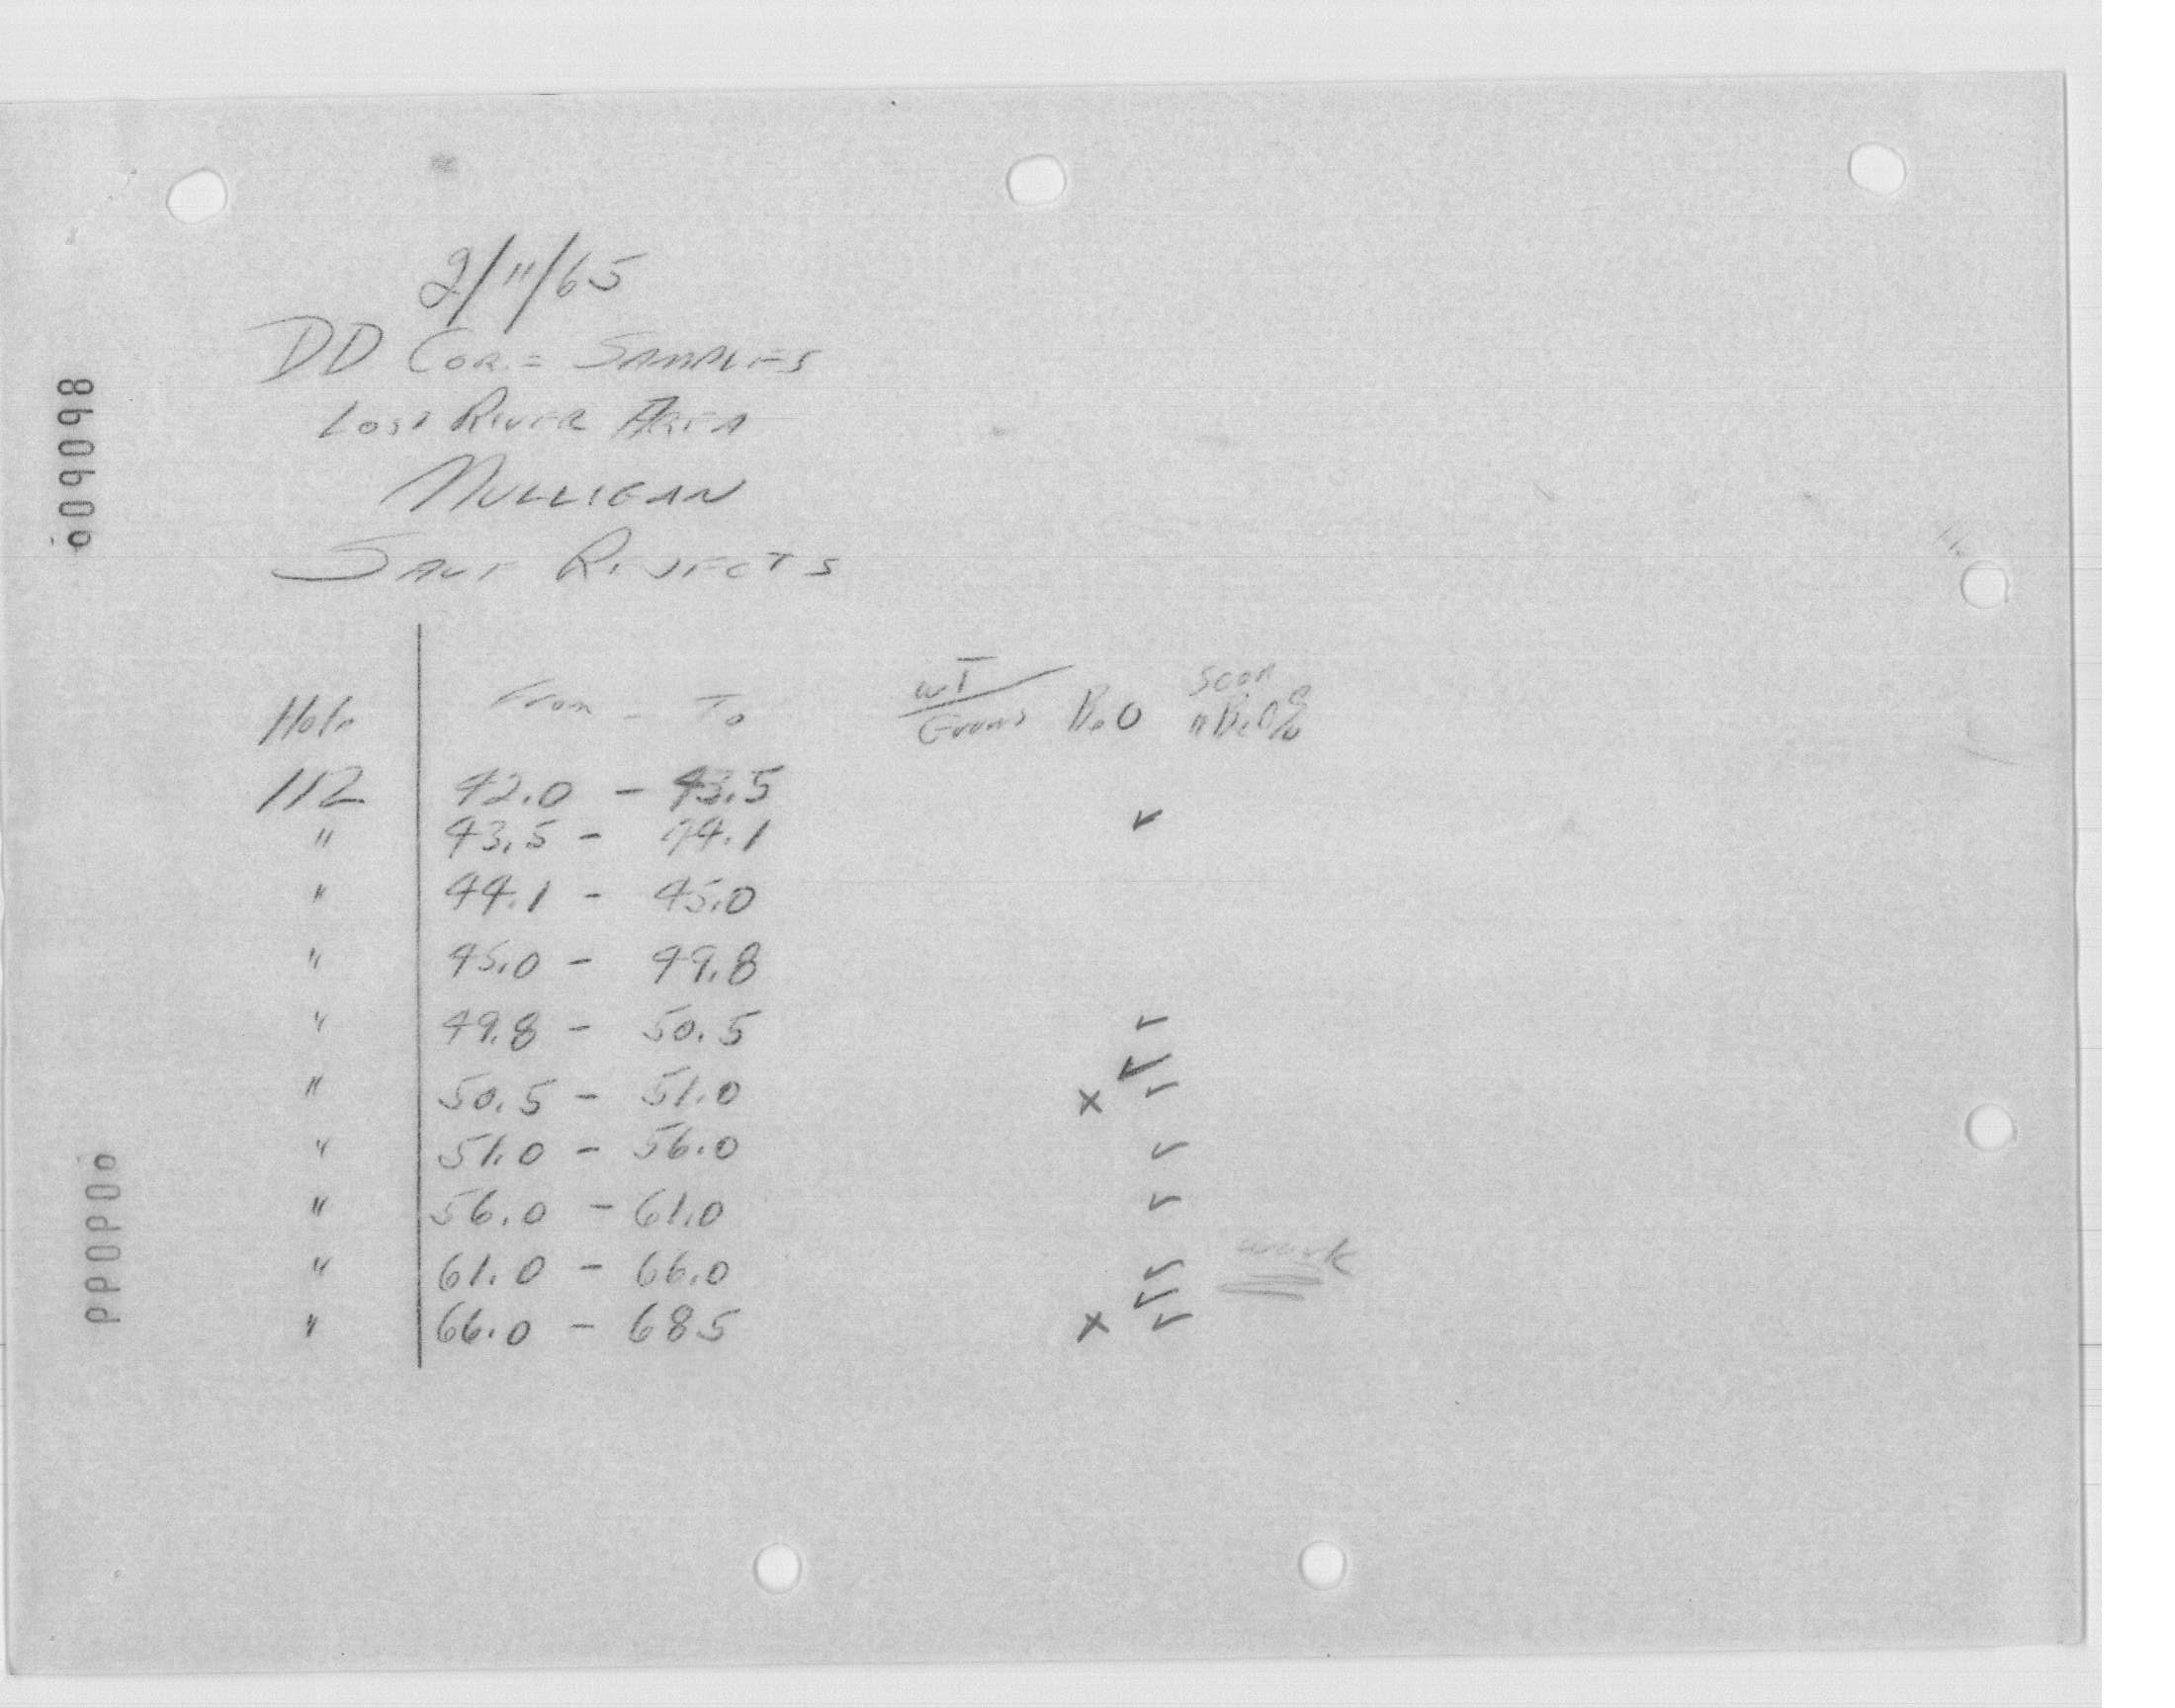 2/11/65
DD Core Samples
Lost River Area
Mulligan
Save Rejects
Hole From - To WT/Grams BeO Scan "BeO%
112 42.0 - 43.5
" 43.5 - 44.1 ✓
" 44.1 - 45.0
" 45.0 - 49.8
" 49.8 - 50.5 ✓
✓
" 50.5 - 51.0 x ✓
" 51.0 - 56.0 ✓
" 56.0 - 61.0 ✓
work
" 61.0 - 66.0 ✓
✓
" 66.0 - 685 x ✓